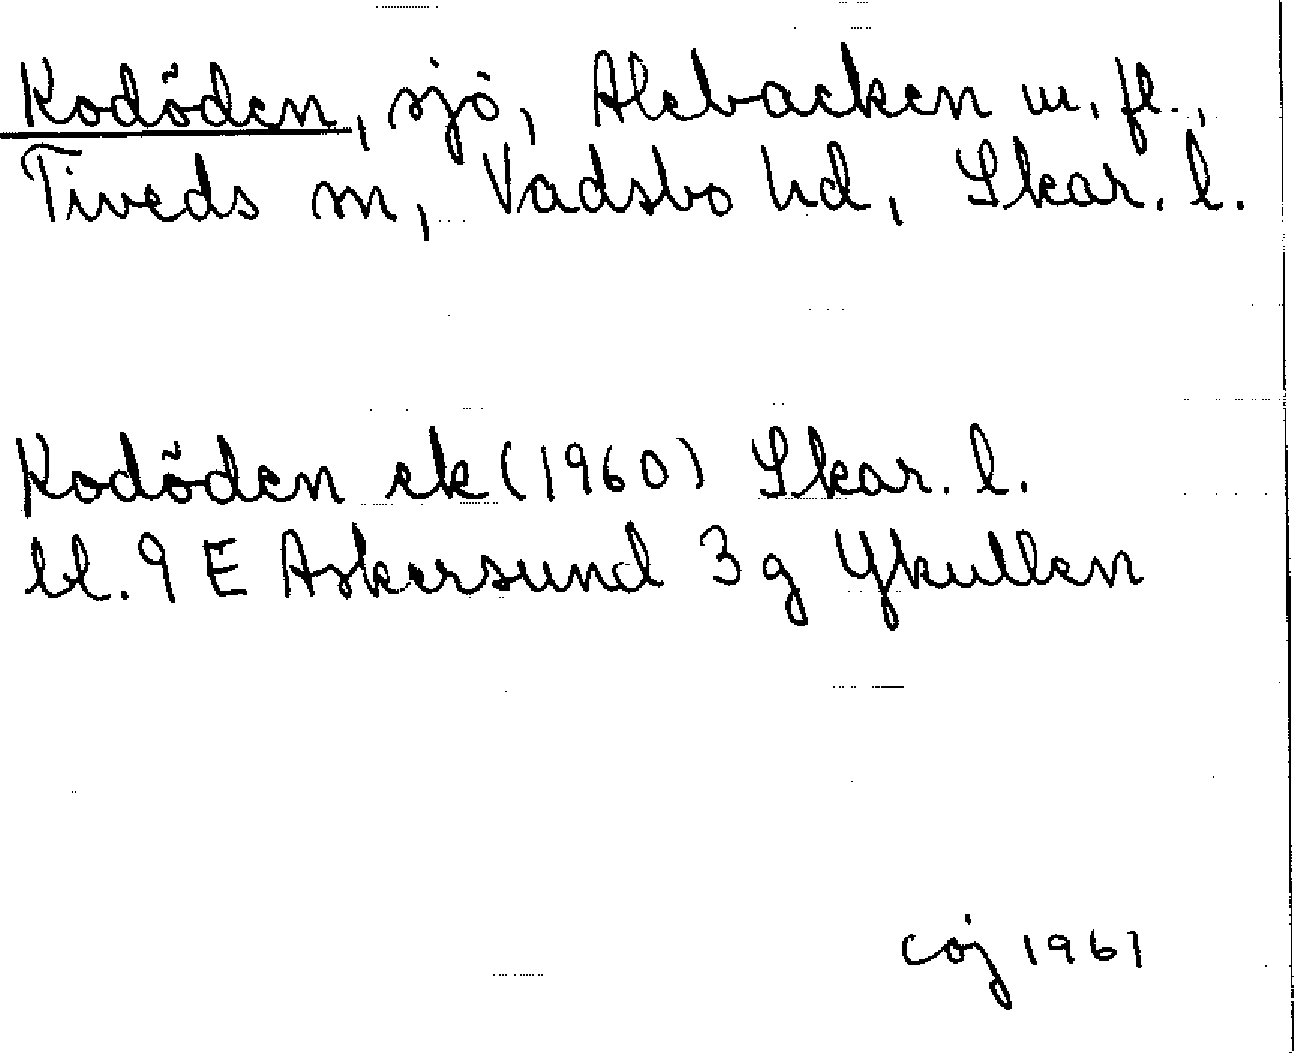 Kodöden, sjö, Alebacken m. fl.,
Tiveds sn, Vadsbo hd, Skar. l.
Kodöden ek (1960) Skar. l.
bl. 9 E Askersund 3 g Ykullen
coj 1961